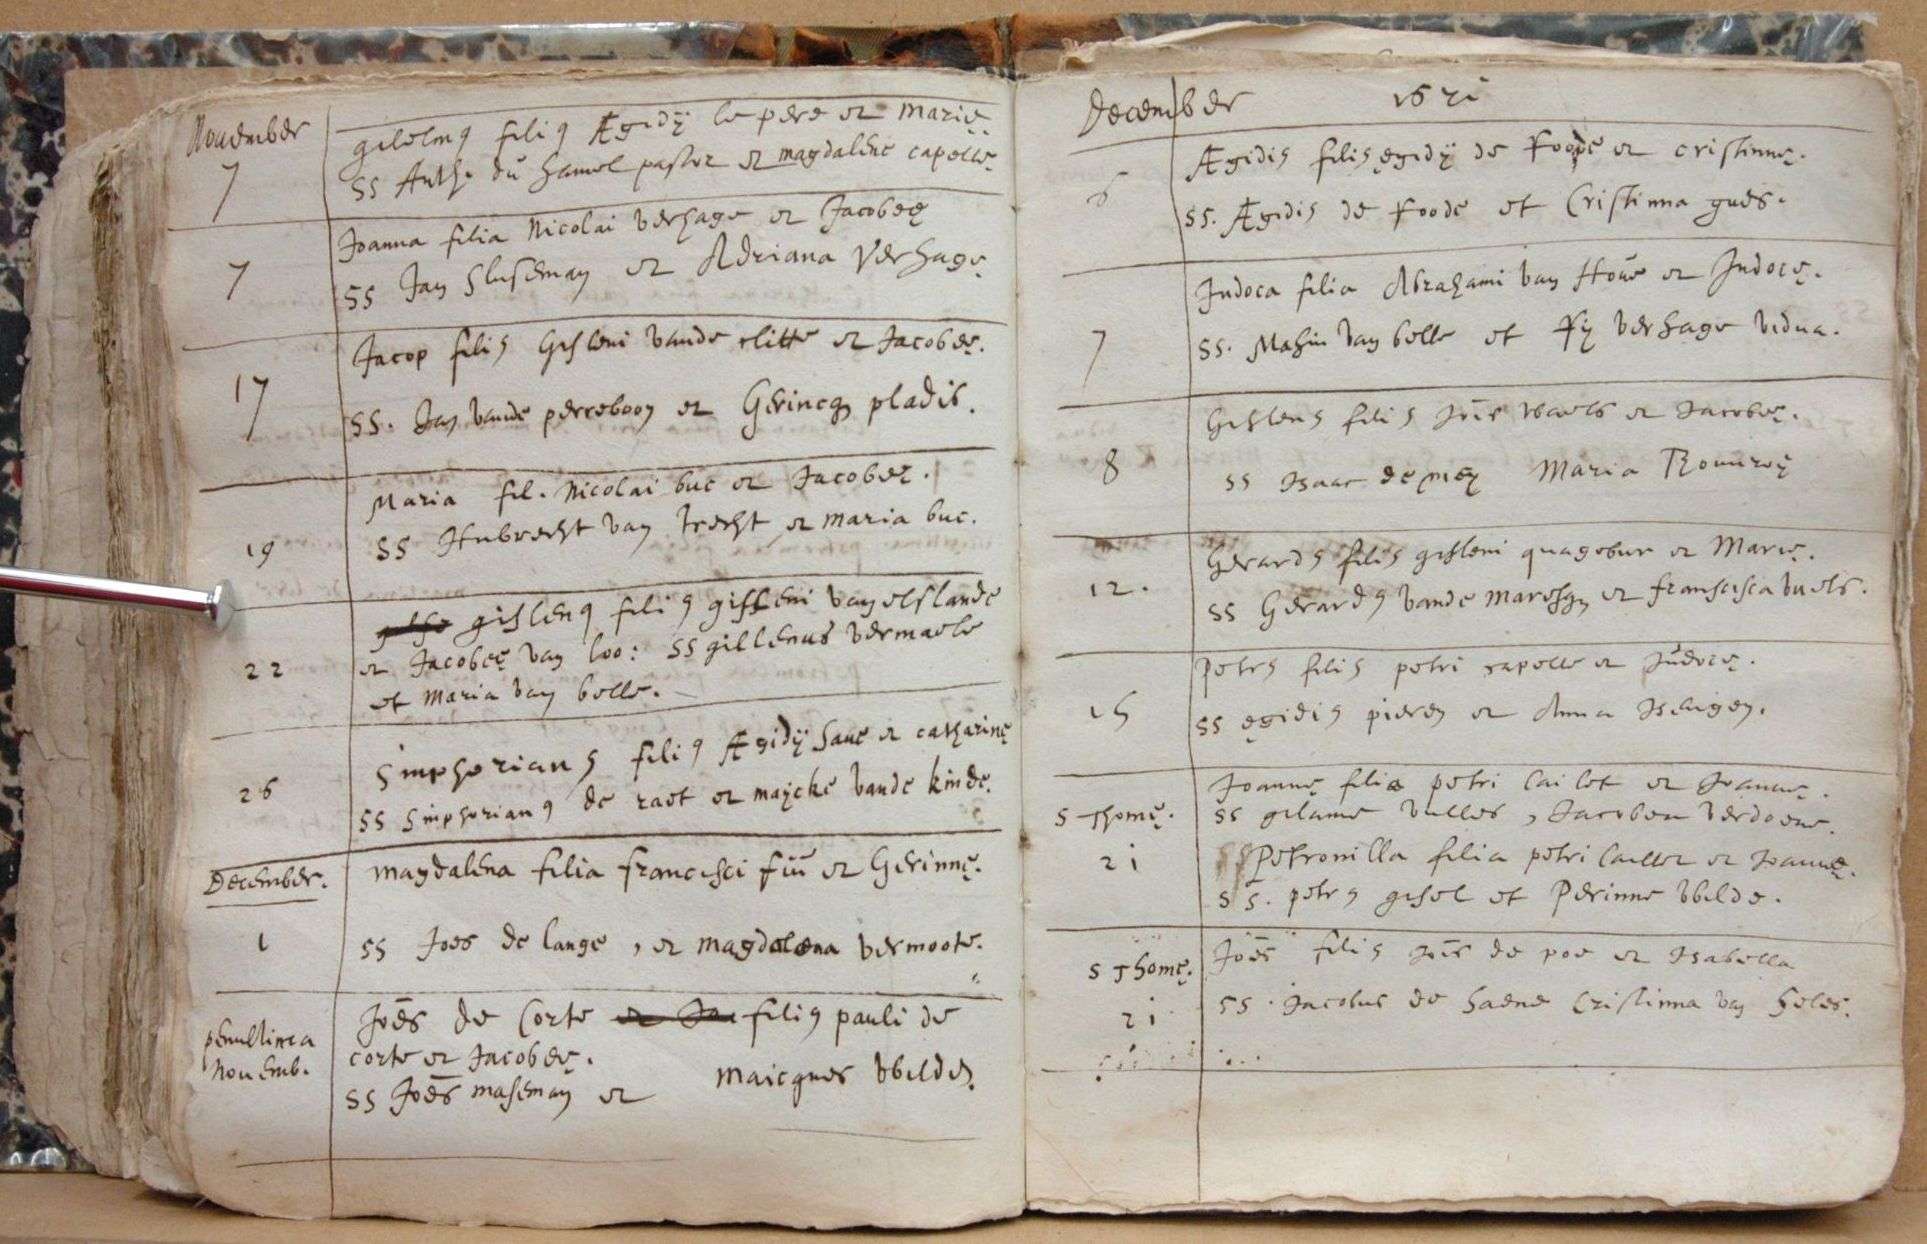 November
7
gilelmꝰ filiꝰ Ægidij le pere et Marię
SS Anth. du hamel pastor et magdalene capellę
7
Joanna filia Nicolai verhage et Jacobeę
SS Jan Sluseman et Adriana Verhage
17
Jacop filiꝰ Gisleni vande clitte et Jacobeę.
SS. Jan vande perreboon et Gerincq pladis.
19
Maria fil. Nicolai buc et Jacobeę.
SS Hubrecht van trecht et maria buc.
22
gislenꝰ filiꝰ gisleni van elslande
et Jacobeę van loo: SS gillenus vermaele
et maria van belle.
26
Simphorianꝰ filiꝰ Ægidij have et catharinę
SS Simphorianꝰ de raet et maycke vande kinde.
December.
1
magdalena filia francisci et Gerinnę.
SS Joes de lange, et magdalena vermoote.
penultima
Novemb.
Joēs de Corte filiꝰ pauli de
corte et Jacobeę.
SS Joēs maseman et maicques Wilden
December 1621
6
Ægidiꝰ filiꝰ egidij de Foode et cristinnę.
SS. Ægidiꝰ de Foode et Cristinna gues.
7
Judoca filia Abrahami van Hove et Judocę.
SS. Mahiu van belle et Fij verhage vidua.
8
Gislenꝰ filiꝰ Joīs Waels et Jacobeę.
SS Isaac de mey Maria
12.
Gerardꝰ filiꝰ gisleni quagebur et Marię.
SS Gerardꝰ vande maresq et franscisca vuels.
15
Petrꝰ filiꝰ petri capelle et Judocę.
SS egidiꝰ pieren et Anna
S Thomę.
21
Joannę filia petri lailot et Joannę.
SS gilame vulles, Jacobea verdoene.
Petronilla filia petri et Joannę.
SS. petrꝰ gisel et Perinne Wilde.
S Thomę.
21
Joēs filiꝰ Joīs de poe et Isabella
SS. Jacobus de haene Cristinna van heles.